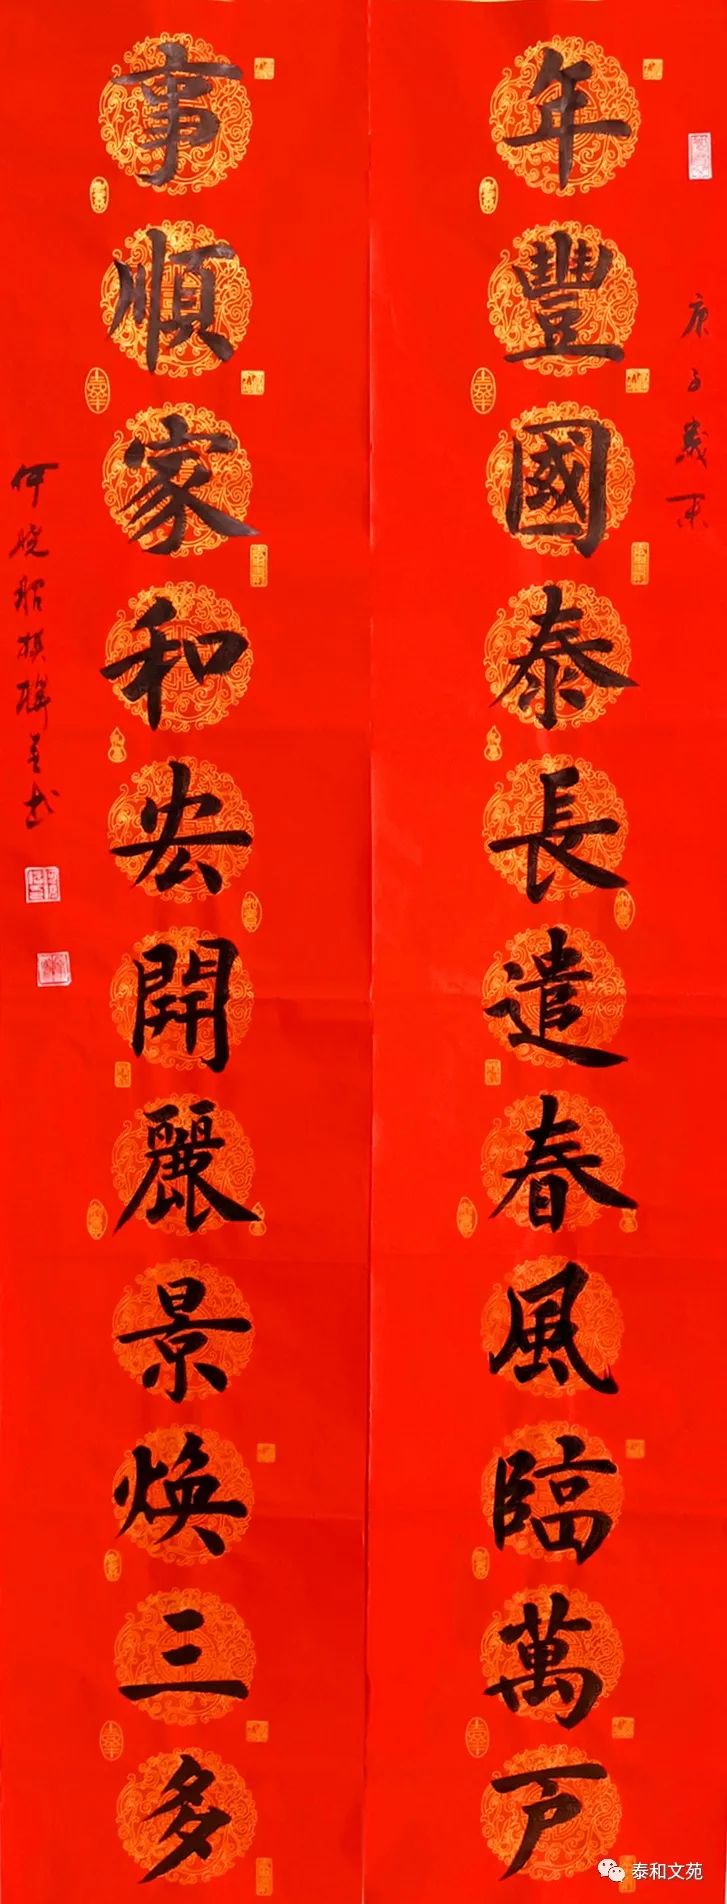 年豐國泰長遣春風臨萬戶
庚子歲末
事順家和宏開麗景煥三多
何晓昭撰聯並书
泰和文苑